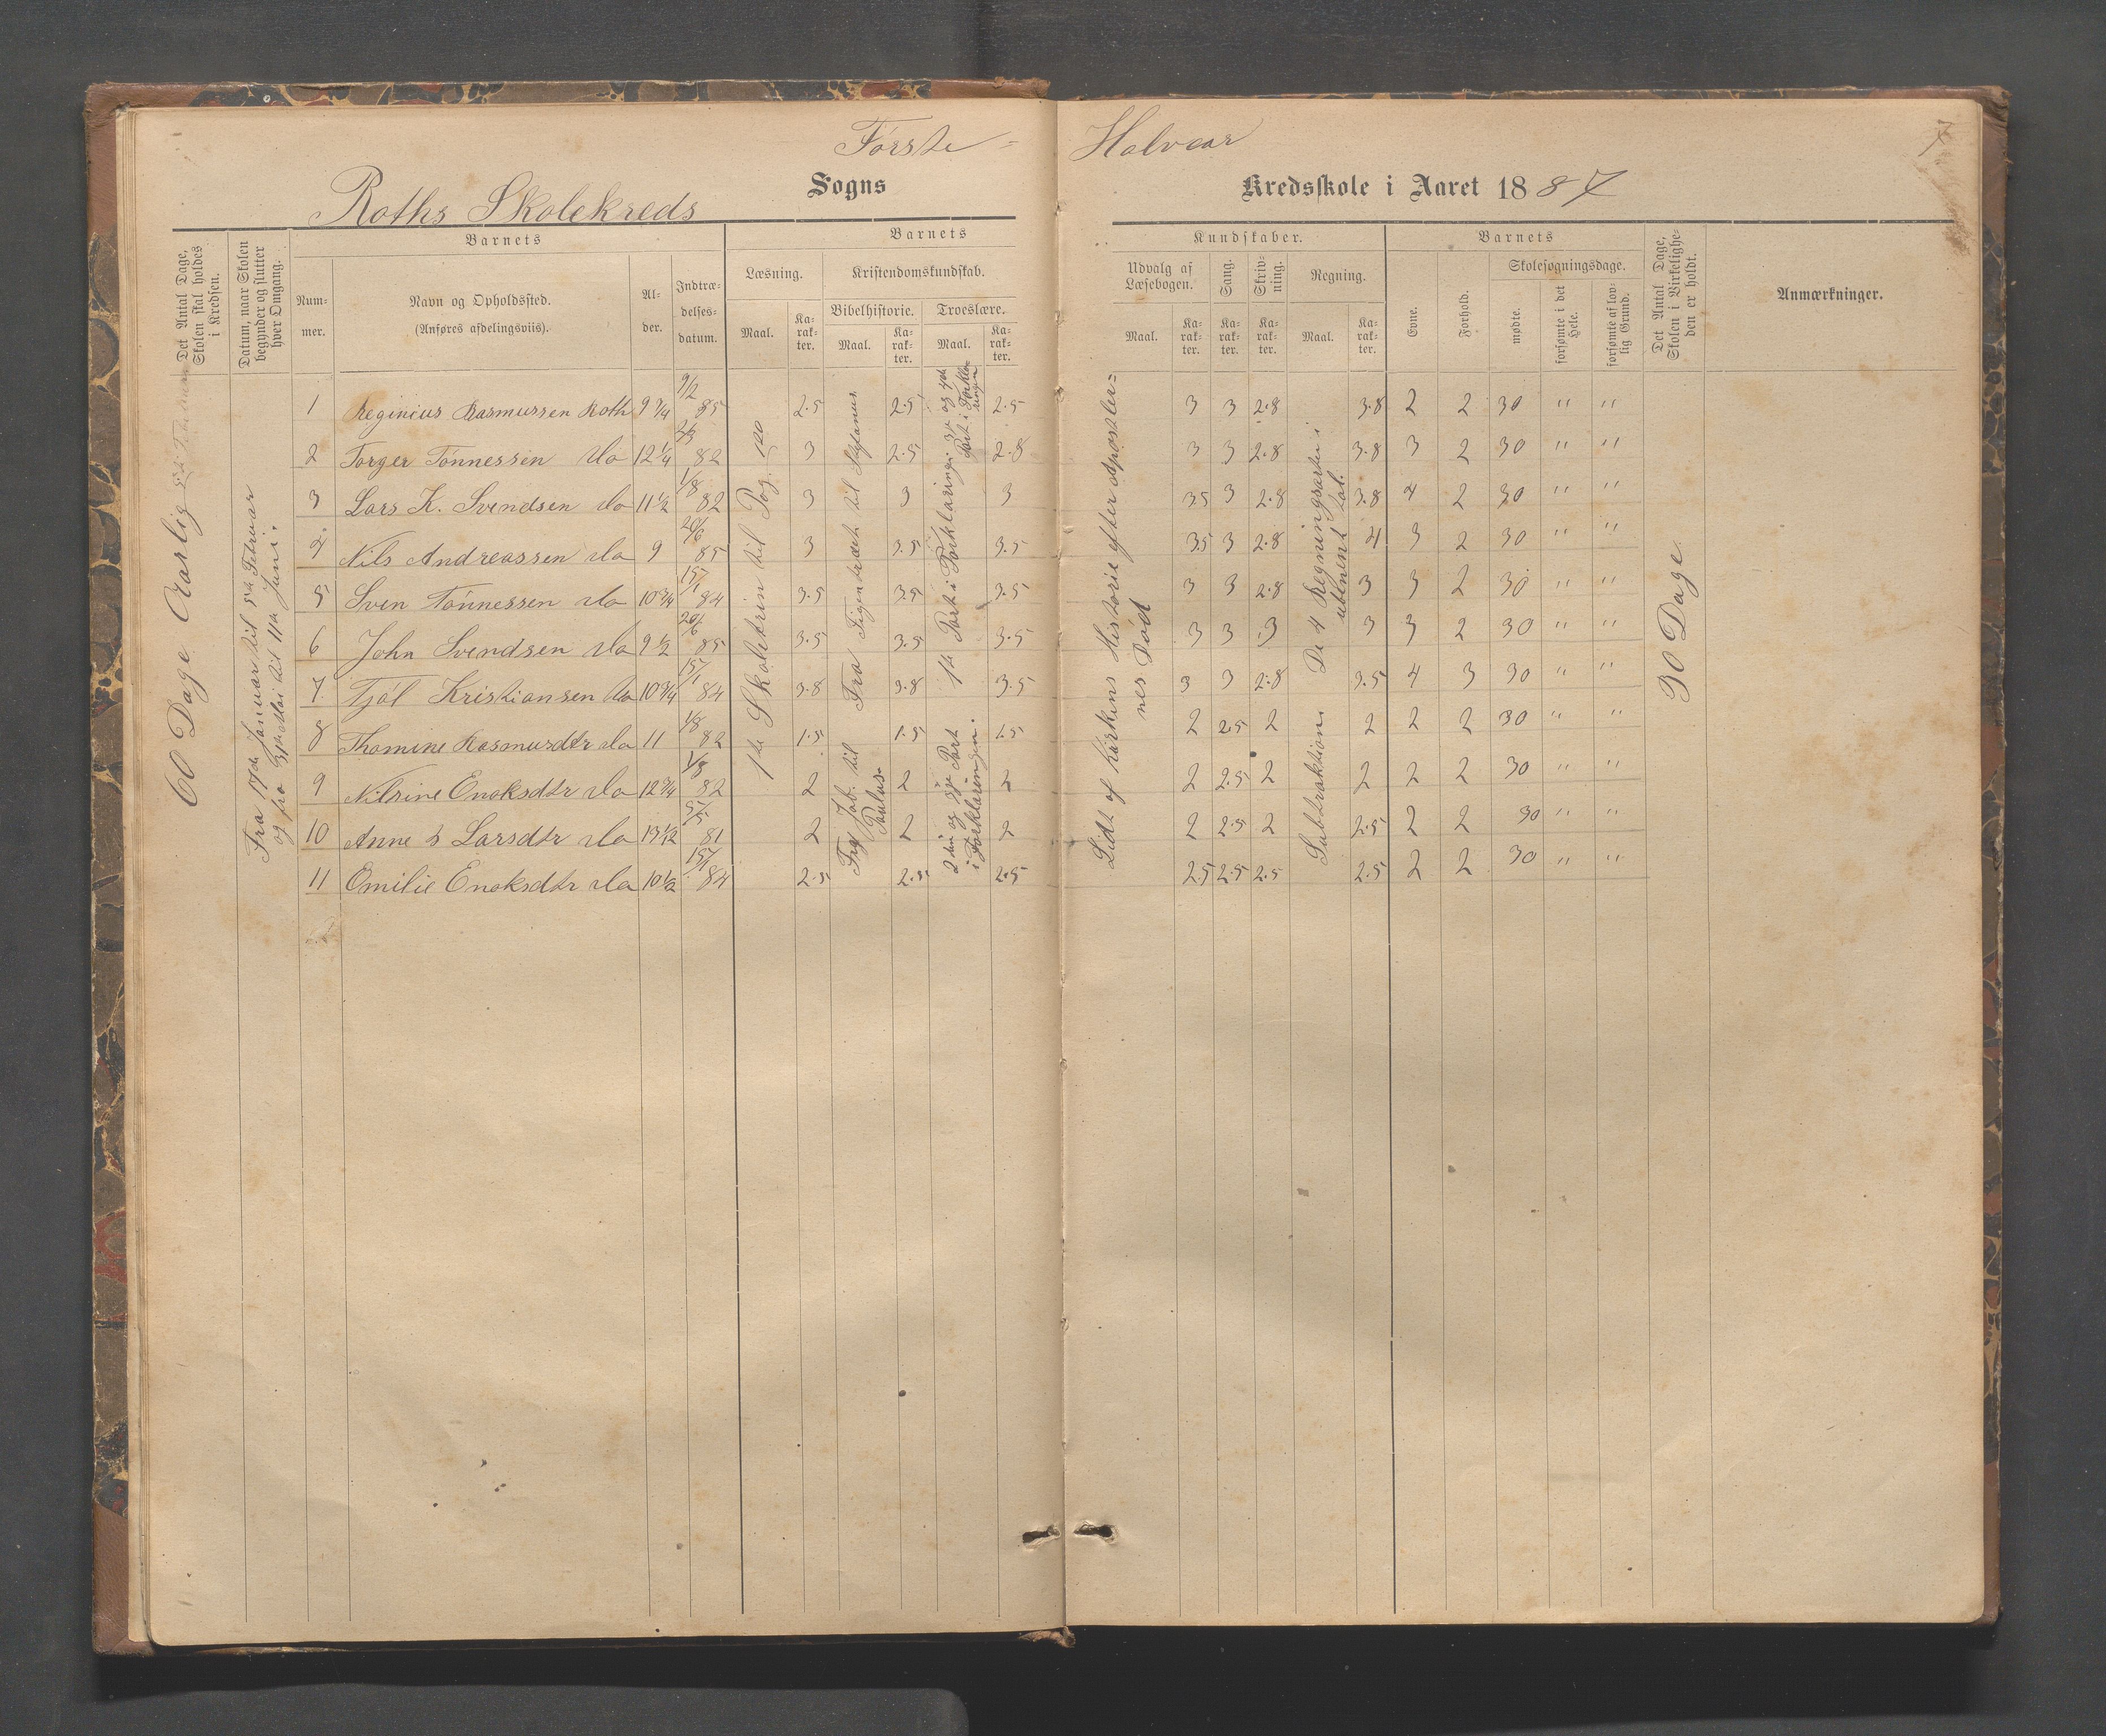 Første - Halvaar
7
Roths Skolekreds Sogns Kredsskole i Aaret 1887
Det Antal Dage, Skolen skal holdes i Kredsen.
Datum, naar Skolen begynder og slutter hver Omgang.
Barnets
Num-mer.
Navn og Opholdssted.
(Anføres afdelingsviis).
Al-der.
Indtræ-delses-datum.
Barnets
Læsning.
Maal.
Ka-rak-ter.
Kristendomskundskab.
Bibelhistorie.
Maal.
Ka-rak-ter.
Troeslære.
Maal.
Ka-rak-ter.
Kundskaber.
Udvalg af Læsebogen.
Maal.
Ka-rak-ter.
Sang.
Ka-rak-ter.
Skriv-ning.
Ka-rak-ter.
Regning.
Maal.
Ka-rak-ter.
Barnets
Evne.
Forhold.
Skolesøgningsdage.
mødte.
forsømte i det Hele.
forsømte af lov-lig Grund.
Det Antal Dage, Skolen i Virkelighe-den er holdt.
Anmærkninger.
60 Dage Aarlig
Fra 17de Januar til 5te Februar
og fra 31te Mai til 11te Juni.
1te Skoletrin til Pag. 120
Fra Figentræet til Stefanus
Fra Job. til Paulus
1te Part i Forklaringi 3je og 4de Part i Forklaringen
2den og 3je Part i Forklaringen.
Lidt af Kirkens Historie efter Apostler=
nes Død
De 4 Regningsarter i ubenevnt Tal.
Subtraktion
30 Dage
1 Reginius Rasmussen Roth 9 3/4 9/2 85 2.5 2.5 2.5 3 3 2.8 3.8 2 2 30 " "
2 Torger Tønnessen do 12 1/4 2/3 82 3 2.5 2.8 3 3 2.8 3.8 3 2 30 " "
3 Lars K. Svendsen do 11 1/2 1/8 82 3 3 3 3.5 3 2.8 3.8 4 2 30 " "
4 Nils Andreassen do 9 20/6 85 3 3.5 3.5 3.5 3 2.8 4 3 2 30 " "
5 Sven Tønnessen do 10 3/4 15/1 84 3.5 3.5 3.5 3 3 2.8 3 3 2 30 " "
6 John Svendsen do 9 1/2 20/6 85 3.5 3.5 3.5 3 3 3 3 3 2 30 " "
7 Tjøl Kristiansen do 10 3/4 15/1 84 3.8 3.8 3.5 3 3 2.8 3.5 4 3 30 " "
8 Thomine Rasmusdtr do 11 1/8 82 1.5 1.5 1.5 2 2.5 2 2 2 2 30 " "
9 Nilsine Enoksdtr do 12 3/4 1/8 82 2 2 2 2 2.5 2 2 2 2 30 " "
10 Anne B Larsdtr do 13 1/2 81 2 2 2 2 2.5 2 2.5 2 2 30 " "
11 Emilie Enoksdtr do 10 1/2 15/1 84 2.5 2.5 2.5 2.5 2.5 2.5 2.5 2 2 30 " "